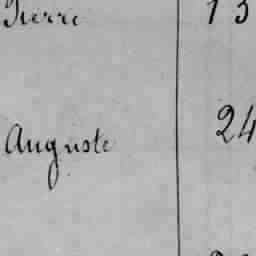 Pierre 13
Auguste 24